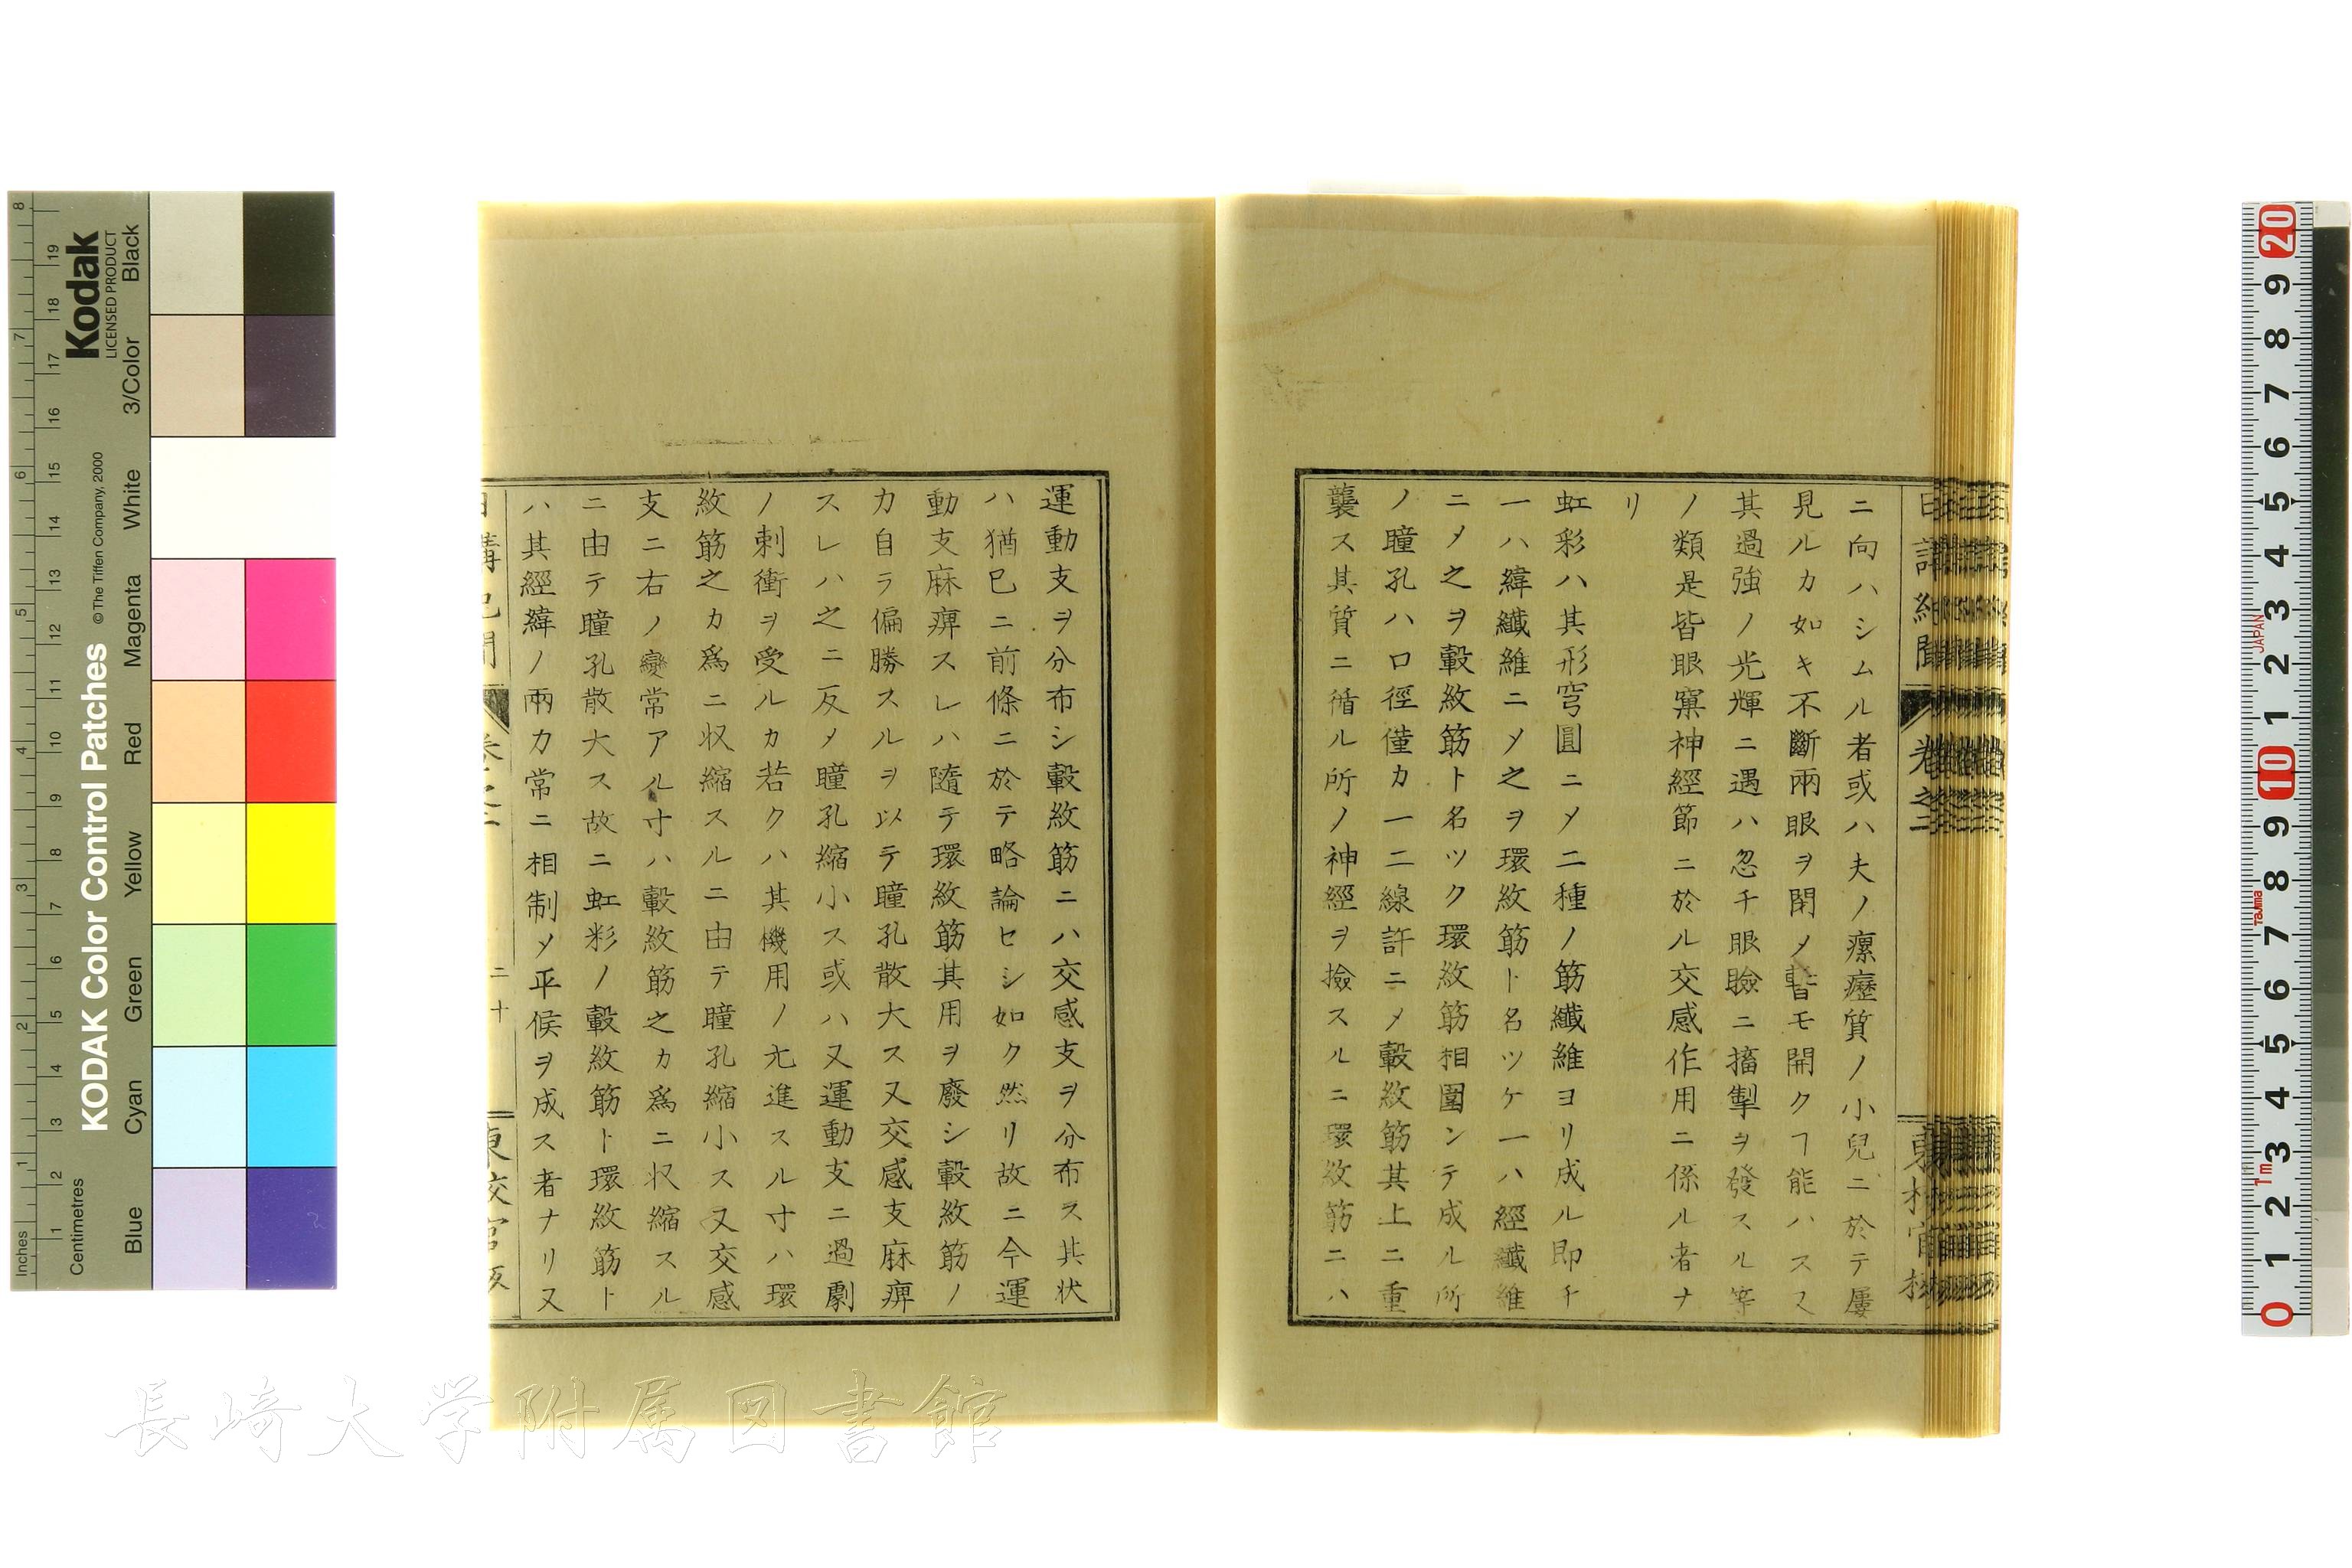 ニ向ハシムル者或ハ夫ノ瘰癧質ノ小兒ニ於テ屢
見ルカ如キ不斷兩眼ヲ閉メ暫モ開クヿ能ハスス
其過強ノ光輝ニ遇ハ忽チ眼瞼ニ搐掣ヲ發スル等
ノ類是皆眼窠神經節ニ於ル交感作用ニ係ル者ナ
リ
虹彩ハ其形穹圓ニメ二種ノ筋纖維ヨリ成ル即チ
一ハ緯纖維ニメ之ヲ環紋筋ト名ツケ一ハ經纖維
ニメ之ヲ轂紋筋ト名ツク環紋筋相圍ンテ成ル所
ノ瞳孔ハ口徑僅カ一二線許ニメ轂紋筋其上ニ重
襲ス其質ニ循ル所ノ神經ヲ撿スルニ環紋筋ニハ
卷之二
運動支ヲ分布シ轂紋筋ニハ交感支ヲ分布ス其状
ハ猶已ニ前條ニ於テ略論セシ如ク然リ故ニ今運
動支麻痹スレハ隨テ環紋筋其用ヲ廢シ轂紋筋ノ
力自ラ偏勝スルヲ以テ瞳孔散大ス又交感支麻痹
スレハ之ニ反メ瞳孔縮小ス或ハ又運動支ニ過劇
ノ刺衝ヲ受ルカ若クハ其機用ノ亢進スル寸ハ環
紋筋之カ爲ニ収縮スルニ由テ瞳孔縮小ス又交感
支ニ右ノ變常アル寸ハ轂紋筋之カ爲ニ収縮スル
ニ由テ瞳孔散大ス故ニ虹彩ノ轂紋筋ト環紋筋ト
ハ其經緯ノ兩力常ニ相制メ平候ヲ成ス者ナリ又
二十
KODAK Color Control Patches
© The Tiffen Company, 2000
Kodak
LICENSED PRODUCT
Inches
Centimetres
Blue
Cyan
Green
Yellow
Red
Magenta
White
3/Color
Black
JAPAN
Tajima
1m
長崎大学附属図書館